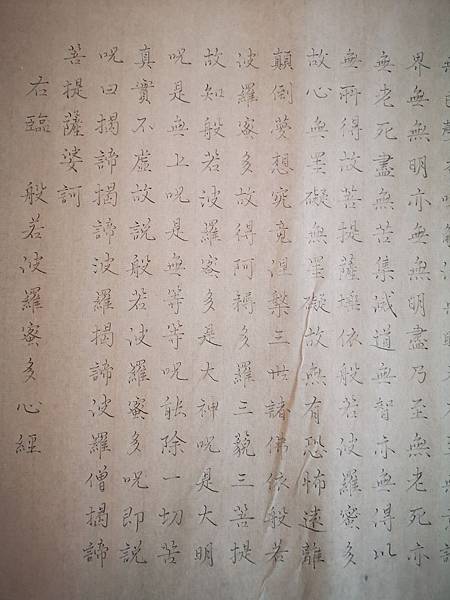 界無無明亦無無明盡乃至無老死亦
無老死盡無苦集滅道無智亦無得以
無所得故菩提薩埵依般若波羅蜜多
故心無罣礙無罣礙故無有恐怖遠離
顛倒夢想究竟涅槃三世諸佛依般若
波羅蜜多故得阿耨多羅三藐三菩提
故知般若波羅蜜多是大神呪是大明
呪是無上呪是無等等呪能除一切苦
真實不虛故說般若波羅蜜多呪即說
呪曰揭諦揭諦波羅揭諦波羅僧揭諦
菩提薩婆訶
右臨 般若波羅蜜多心經